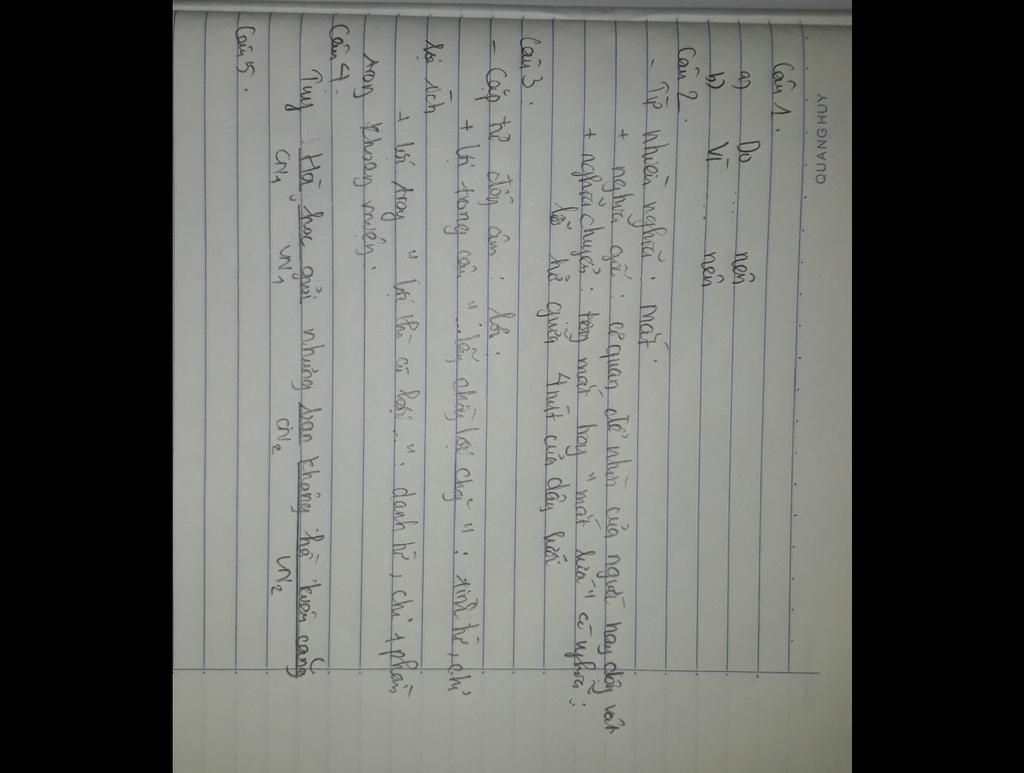 QUANG HUY
Câu 1.
a) Do ..... nên
b) Vì ..... nên
Câu 2.
- Từ nhiều nghĩa: mắt.
+ nghĩa gốc: cơ quan để nhìn của người hay động vật
+ nghĩa chuyển: mắt hay "mắt lưới" có nghĩa:
lỗ hở giữa 4 nút của dây lưới
Câu 3.
- Cặp từ đồng âm: lợi.
+ lợi trong câu "...lấy chồng lợi chăng": tính từ, chỉ
lợi ích
+ lợi trong "lợi thì có lợi...": danh từ, chỉ 1 phần
trong khoang miệng.
Câu 4.
Tuy Hà học giỏi nhưng bạn không hề kiêu căng
CN1 VN1 CN2 VN2
Câu 5.